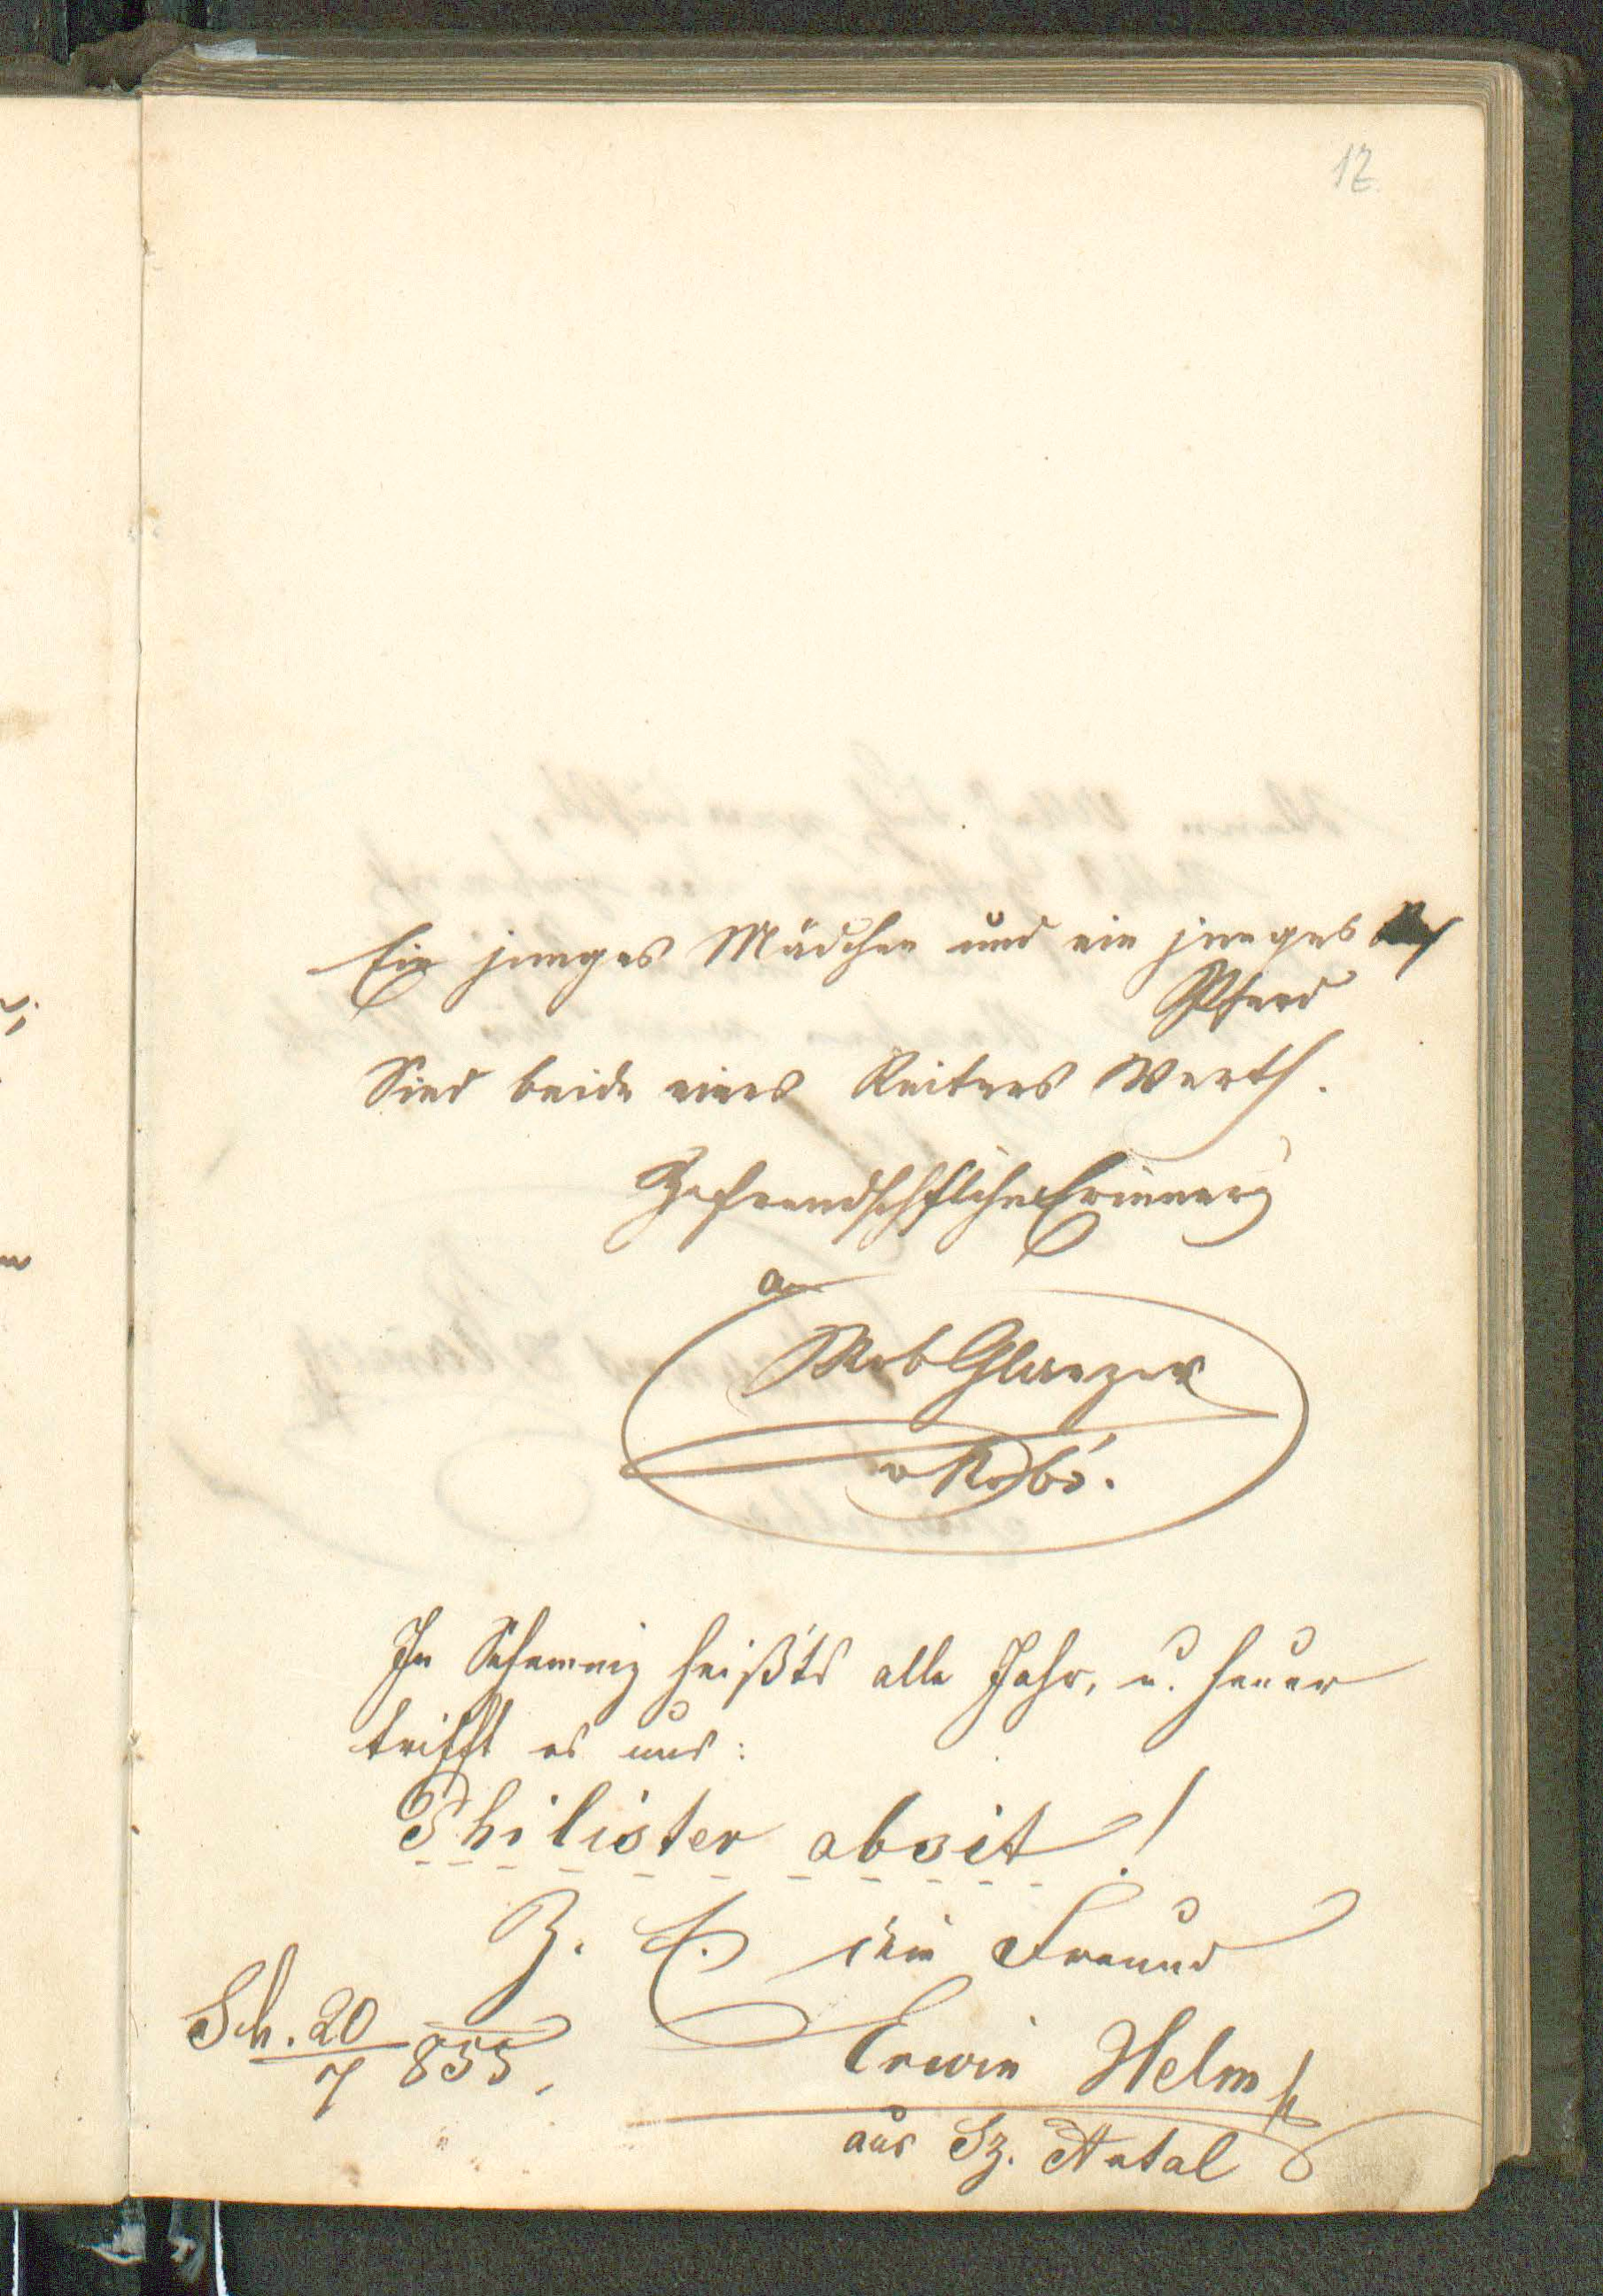 12
Ein junges Mädchen und ein junges
Pferd
Sind beide eines Reiters Werth.
Zefreundschftliche Erinnerg
an
Rob Glanzer
v Robó.
In Schemniz heißt's alle Jahr, u. heuer
trifft es uns:
Philister absit!
Z. E. dein Freund
Sch. 20/7 855,
Erwin Helm
aus Sz. Antal